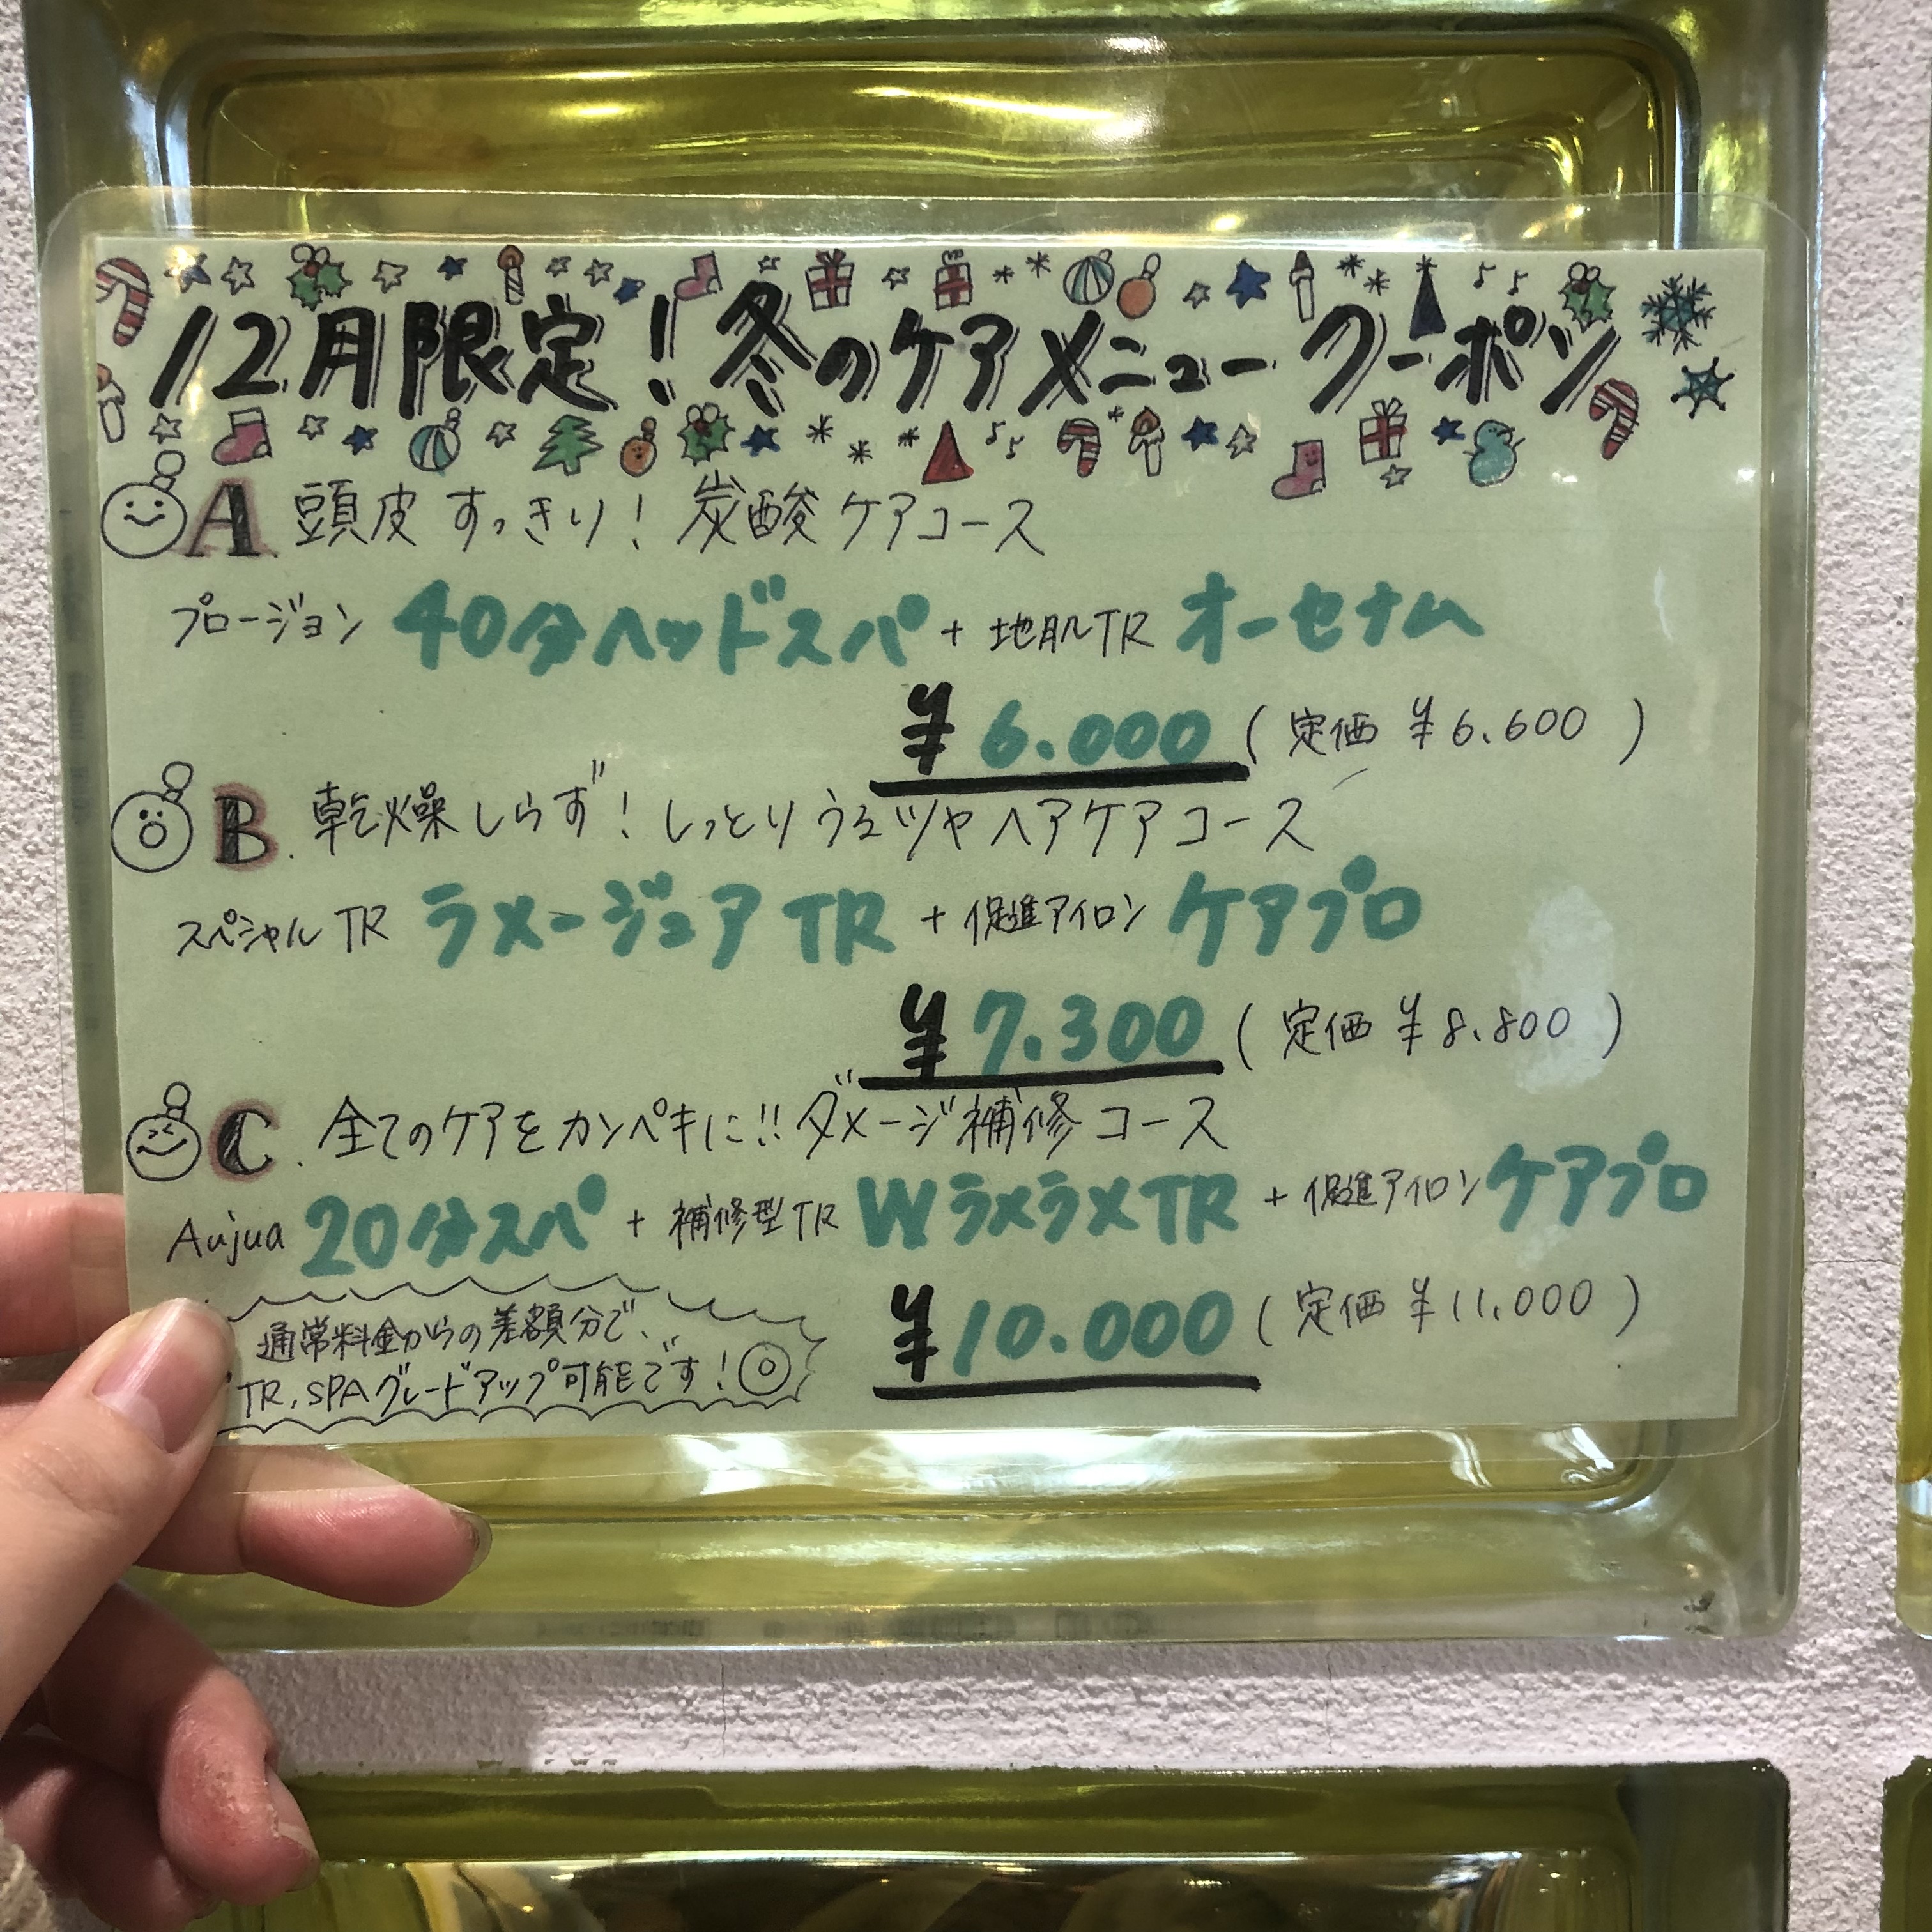 12月限定!冬のケアメニュークーポン
A. 頭皮すっきり! 炭酸ケアコース
プロージョン 40分ヘッドスパ + 地肌TR オーセナム
¥6.000 (定価 ¥6.600)
B. 乾燥しらず! しっとりうるツヤヘアケアコース
スペシャルTR ラメージュアTR + 促進アイロン ケアプロ
¥7.300 (定価 ¥8.800)
C. 全てのケアをカンペキに!! ダメージ補修コース
Aujua 20分スパ + 補修型TR WラメラメTR + 促進アイロン ケアプロ
¥10.000 (定価 ¥11,000)
通常料金からの差額分で、
TR,SPAグレードアップ可能です!